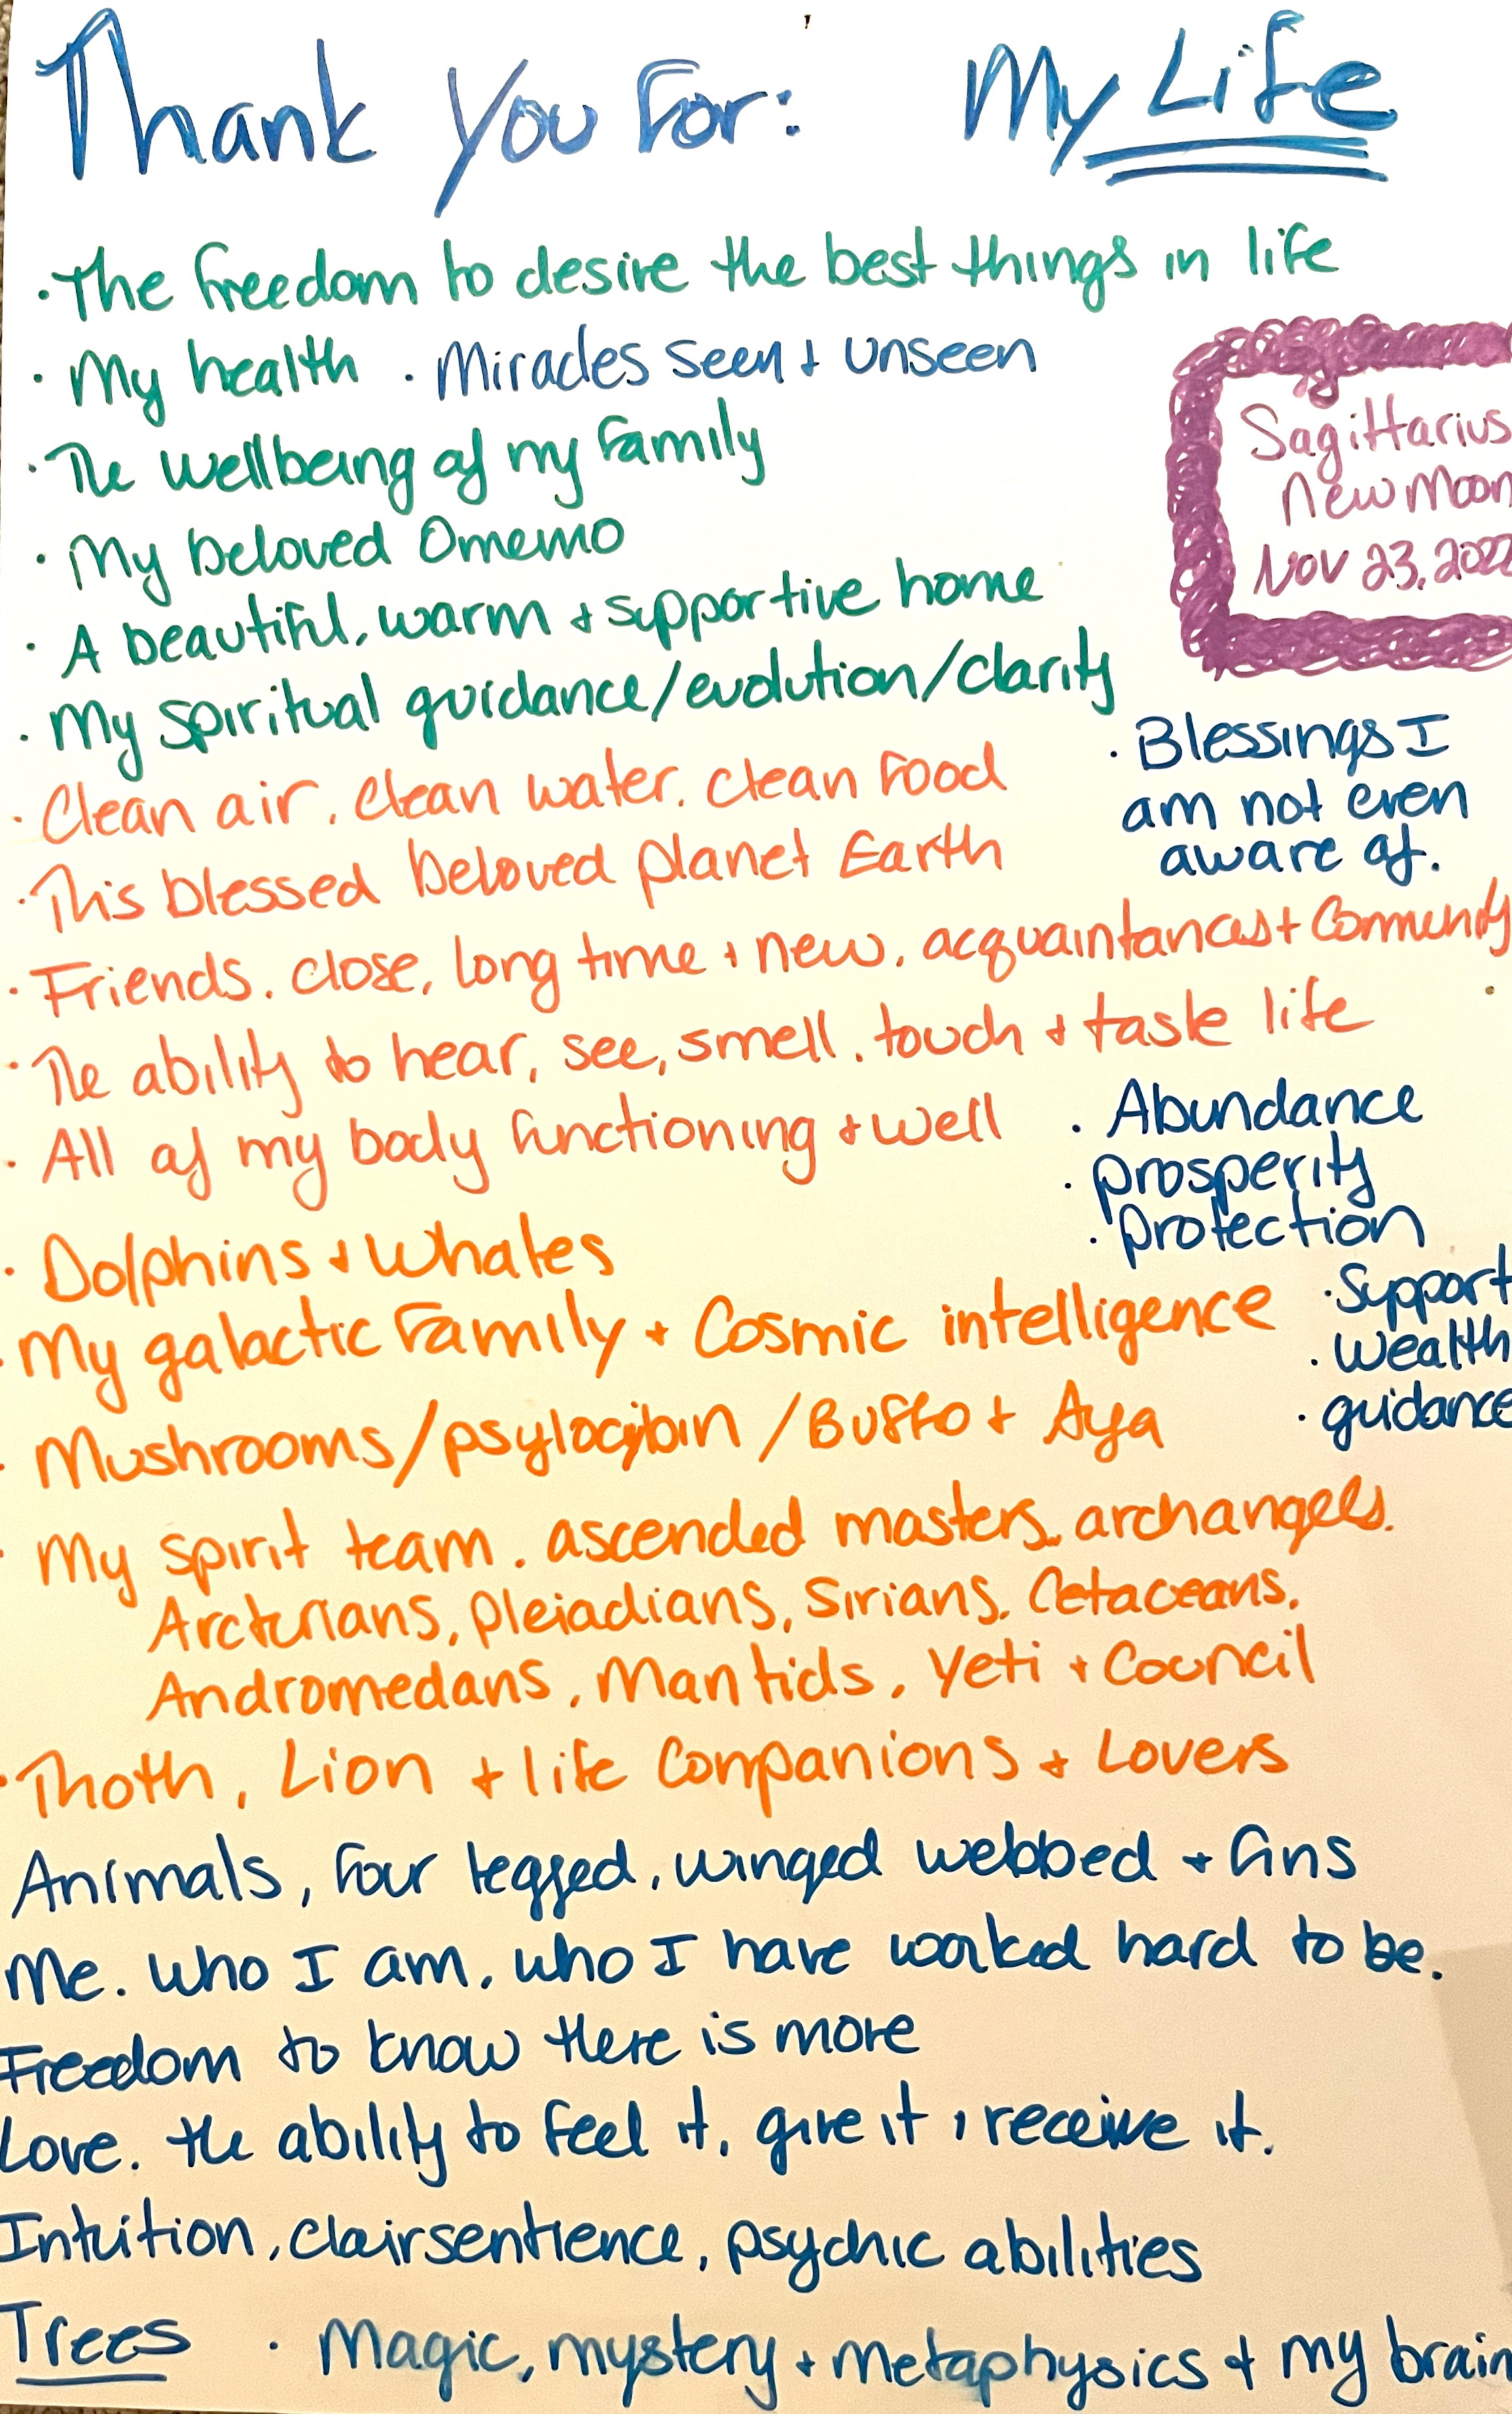 Thank You For: My Life
· The freedom to desire the best things in life
· My health · Miracles seen + unseen
· The wellbeing of my family
· My beloved Omemo
· A beautiful, warm + supportive home
· My spiritual guidance/evolution/clarity
Sagittarius
New Moon
Nov 23, 2022
· Clean air, clean water, clean food
· This blessed beloved planet Earth
· Blessings I
am not even
aware of.
· Friends. close, long time + new, acquaintances + Community
· The ability to hear, see, smell, touch + taste life
· All of my body functioning + well
· Abundance
· prosperity
· protection
· Support
· wealth
· guidance
· Dolphins + Whales
· My galactic Family + Cosmic intelligence
· Mushrooms/psylocybin/Buffo + Aya
· My spirit team. ascended masters, archangels.
Arcturians, Pleiadians, Sirians, Cetaceans,
Andromedans, Mantids, Yeti + Council
· Thoth, Lion + life Companions + Lovers
Animals, four legged, winged webbed + fins
Me. who I am, who I have worked hard to be.
Freedom to know there is more
Love. the ability to feel it, give it, receive it.
Intuition, clairsentience, psychic abilities
Trees · Magic, mystery + Metaphysics + my brain